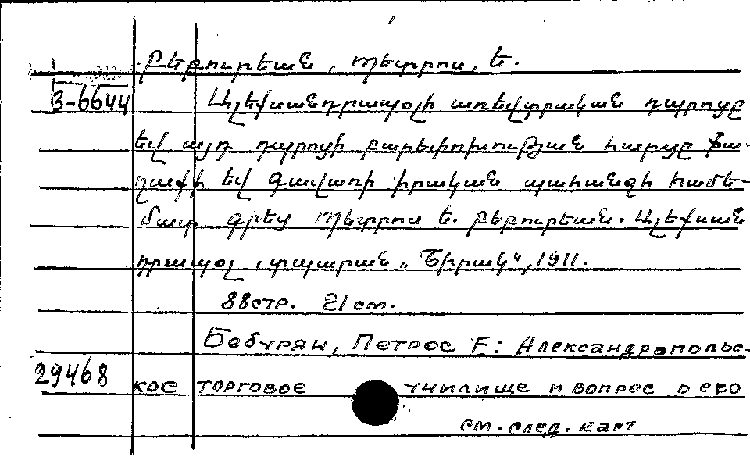 Բեբուրեան, Պետրոս, Ե.
3-6644 Ալեքսանդրապօլի առեվտրական դպրոցը
եվ այդ դպրոցի բարեփոխության հարցը քա-
ղաքի եվ գավառի իրական պահանջի համե-
մատ գրեց Պետրոս Ե. Բեբուրեան. Ալեքսան
դրապօլ, տպարան „Շիրակ“, 1911.
88стр. 21 см.
Бабурян, Петрос Е: Александрапольс-
29468 кое торговое училище и вопрос о его
см. след. карт